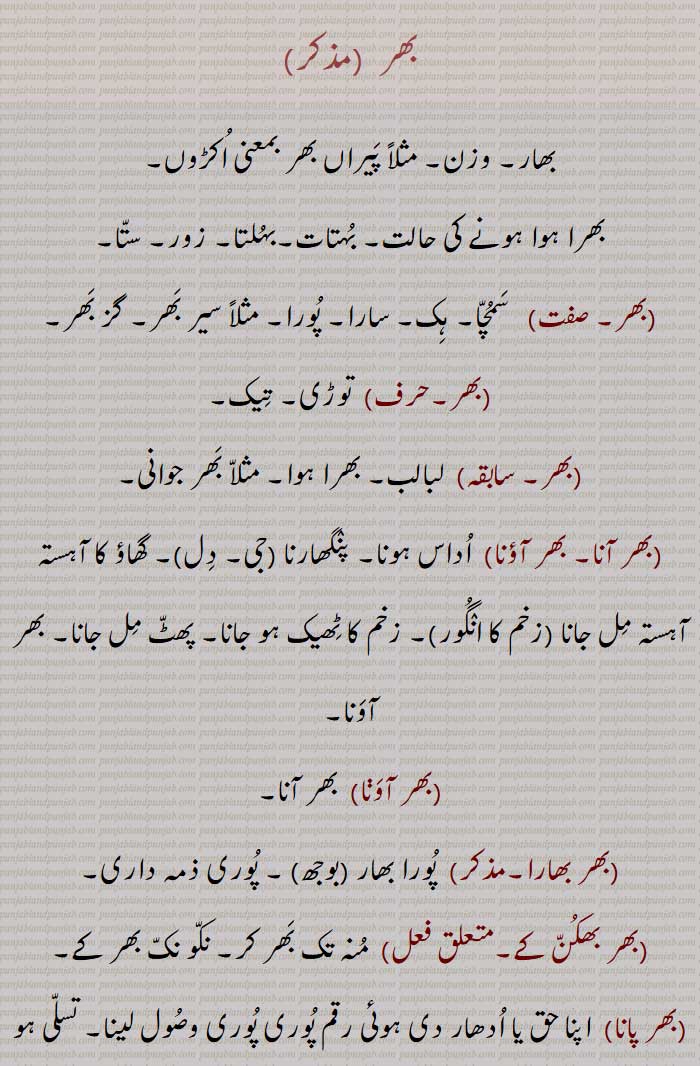 بھر (مذکر)
بھار۔ وزن۔ مثلاً پَیراں بھر بمعنی اُکڑوں۔
بھرا ہوا ہونے کی حالت۔ بُہتات۔بہُلتا۔ زور۔ ستّا۔
(بھر۔ صفت) سَمُچّا۔ ہِک۔ سارا۔ پُورا۔ مثلاً سیر بَھر۔ گز بَھر۔
(بھر۔حرف) توڑی۔ تِیک۔
(بھر۔ سابقہ) لبالب۔ بھرا ہوا۔ مثلاّ بَھر جوانی۔
(بھر آنا۔ بھر آؤنا) اُداس ہونا۔ پنگھارنا (جی۔ دِل)۔ گھاؤ کا آہستہ
آہستہ مِل جانا (زخم کا انگُور)۔ زخم کا ٹِھیک ہو جانا۔ پھٹّ مِل جانا۔ بھر
آؤنا۔
(بھر آوَنا) بھر آنا۔
(بھر بھارا۔مذکر) پُورا بھار (بوجھ) ۔ پُوری ذمہ داری۔
(بھر بھکُنّ کے۔متعلق فعل) مُنہ تک بَھر کر۔ نکّو نکّ بھر کے۔
(بھر پانا) اپنا حق یا اُدھار دی ہوئی رقم پُوری پُوری وصُول لینا۔ تسلّی ہو